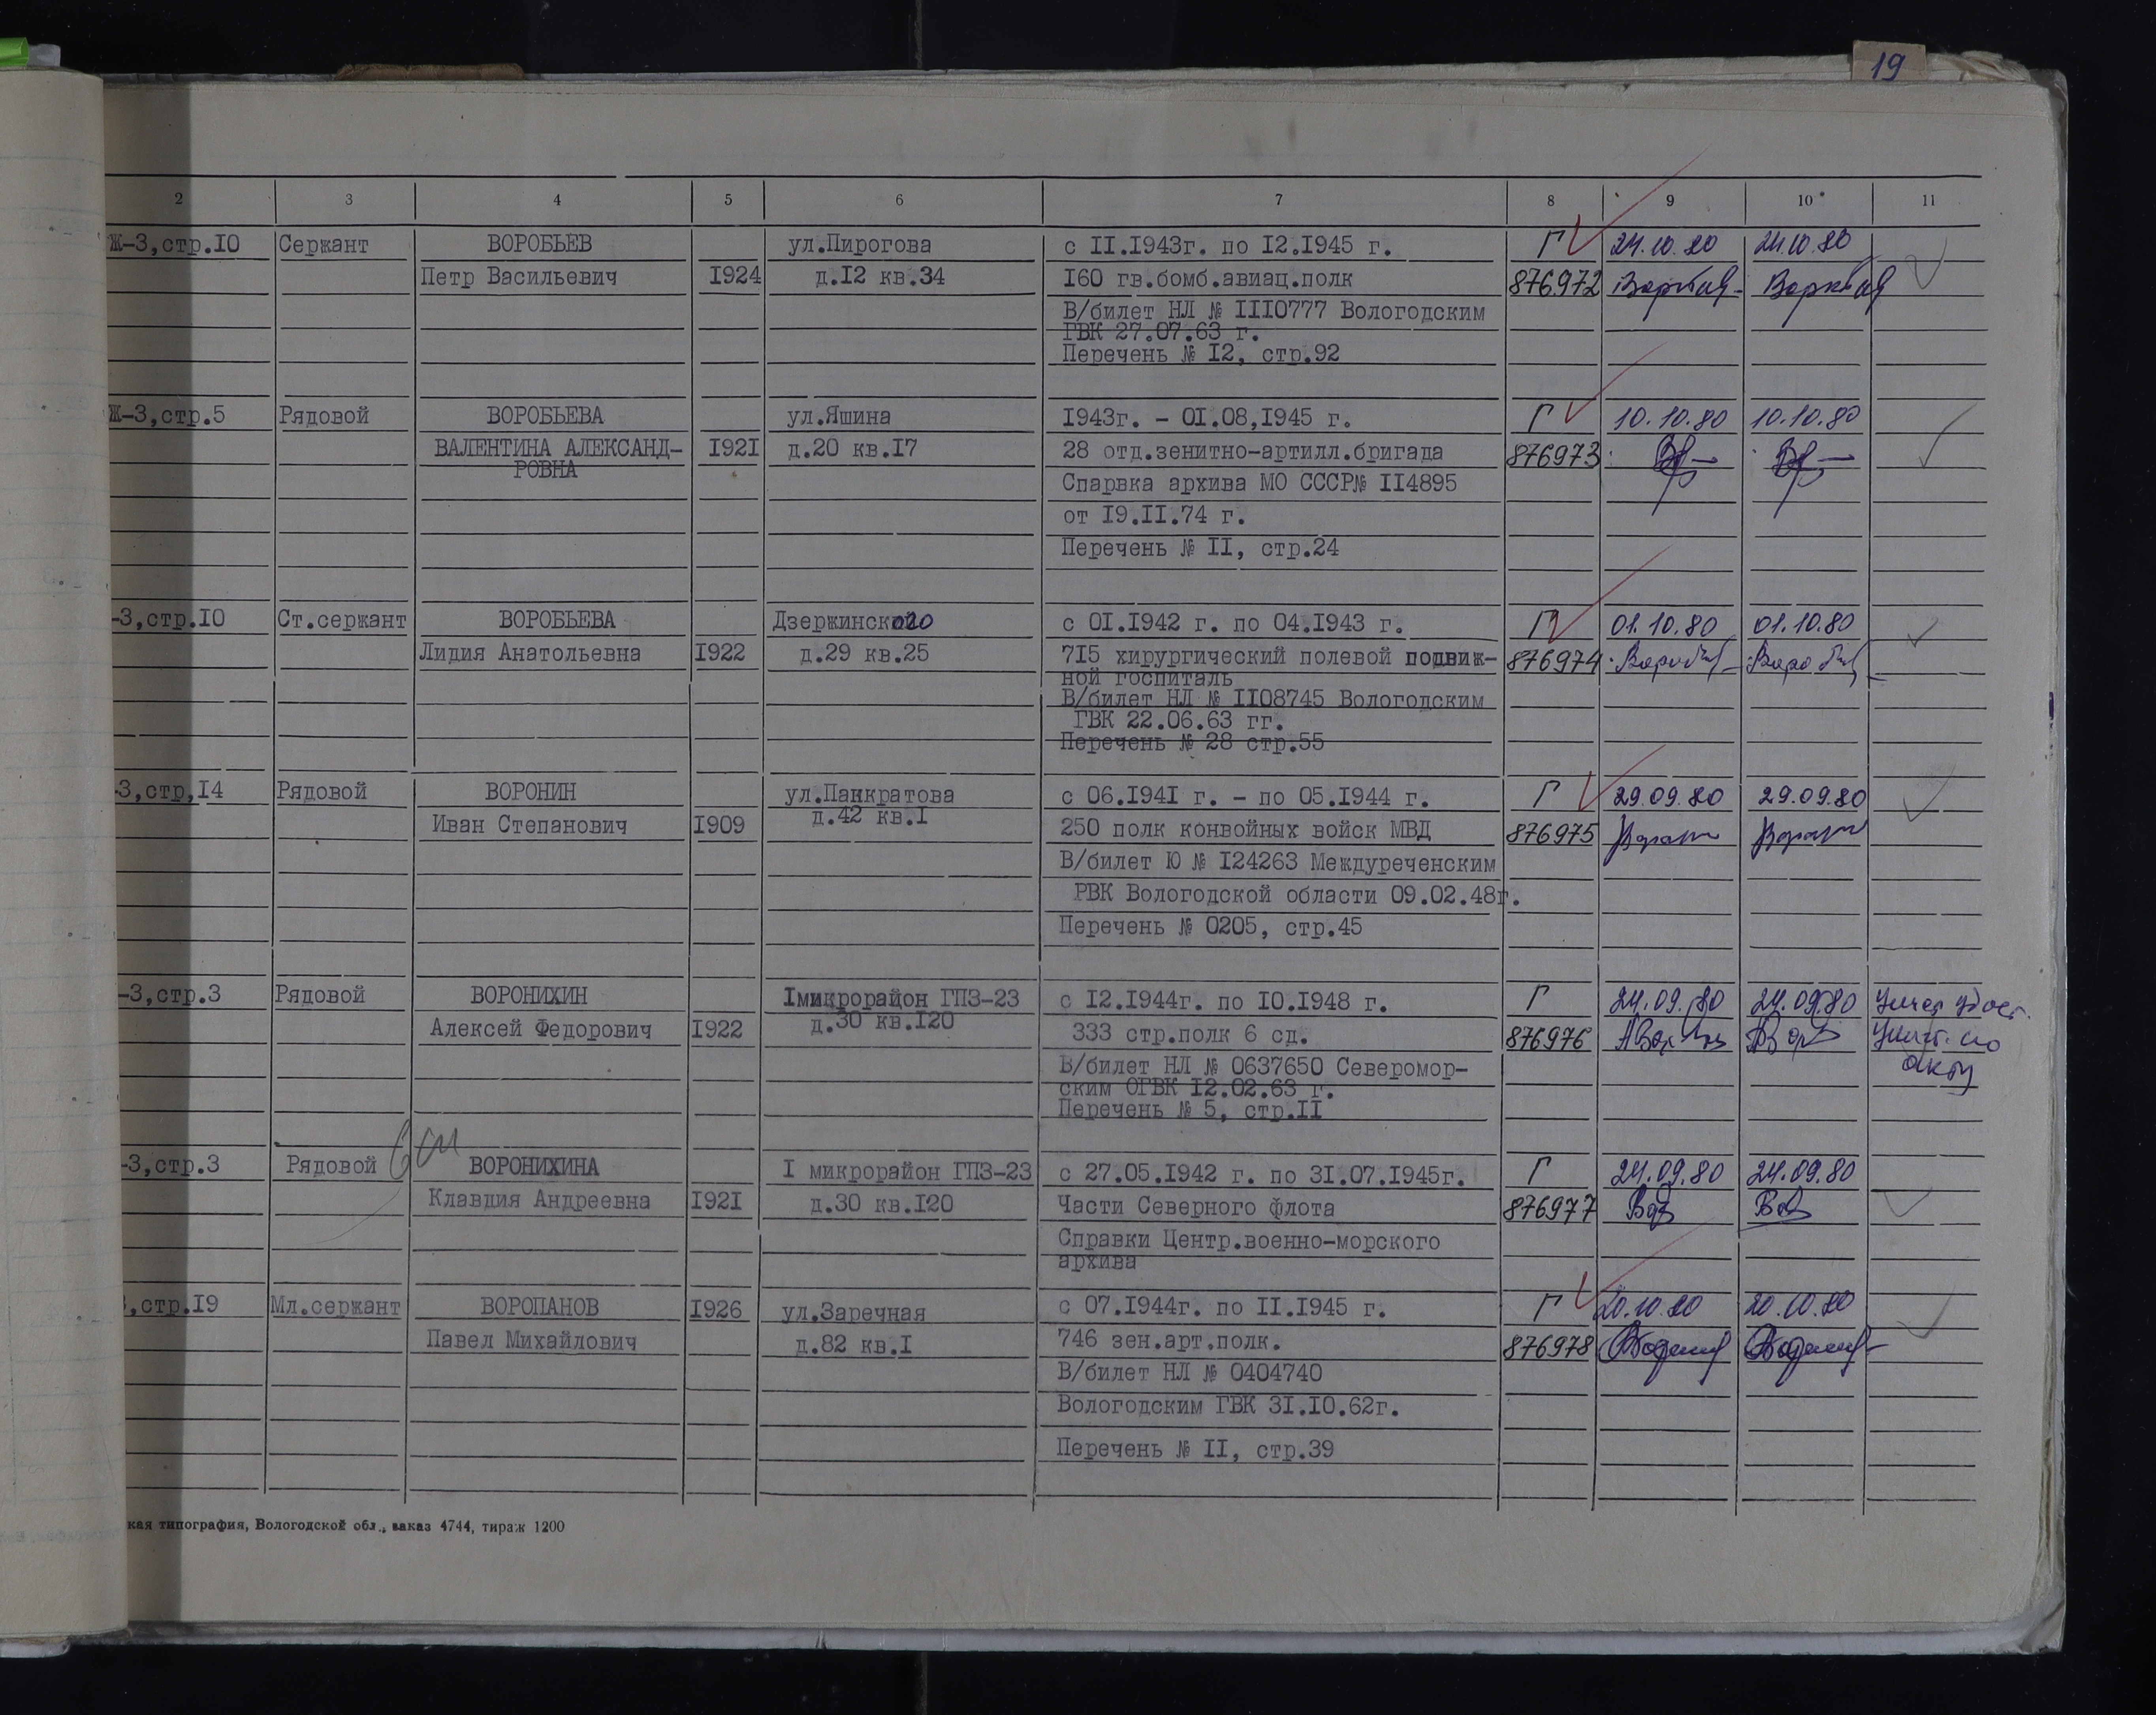 19
2 3 4 5 6 7 8 9 10 11
Ж-3,стр.10 Сержант ВОРОБЬЕВ ул.Пирогова с II.1943г. по 12.1945 г. Г 24.10.80 24.10.80
Петр Васильевич 1924 д.12 кв.34 160 гв.бомб.авиац.полк 876972
В/билет НЛ № IIIO777 Вологодским
ГВК 27.07.63 г.
Перечень № 12, стр.92
Ж-3,стр.5 Рядовой ВОРОБЬЕВА ул.Яшина 1943г. - 01.08,1945 г. Г 10.10.80 10.10.80
ВАЛЕНТИНА АЛЕКСАНД- 1921 д.20 кв.17 28 отд.зенитно-артилл.бригада 876973
РОВНА
Спарвка архива МО СССР№ II4895
от 19.II.74 г.
Перечень № II, стр.24
-3,стр.10 Ст.сержант ВОРОБЬЕВА Дзержинского с 01.1942 г. по 04.1943 г. Г 01.10.80 01.10.80
Лидия Анатольевна 1922 д.29 кв.25 715 хирургический полевой подвиж- 876974
ной госпиталь
В/билет НЛ № II08745 Вологодским
ГВК 22.06.63 гг.
Перечень № 28 стр.55
-3,стр,14 Рядовой ВОРОНИН ул.Панкратова с 06.1941 г. - по 05.1944 г. Г 29.09.80 29.09.80
Иван Степанович 1909 д.42 кв.I 250 полк конвойных войск МВД 876975
В/билет Ю № 124263 Междуреченским
РВК Вологодской области 09.02.48г.
Перечень № 0205, стр.45
-3,стр.3 Рядовой ВОРОНИХИН Iмикрорайон ГПЗ-23 с 12.1944г. по 10.1948 г. Г 24.09.80 24.09.80
Алексей Федорович 1922 д.30 кв.120 333 стр.полк 6 сд. 876976
акту
В/билет НЛ № 0637650 Североmор-
ским ОГВК 12.02.63 г.
Перечень № 5, стр.II
-3,стр.3 Рядовой ВОРОНИХИНА I микрорайон ГПЗ-23 с 27.05.1942 г. по 31.07.1945г. Г 24.09.80 24.09.80
Клавдия Андреевна 1921 д.30 кв.120 Части Северного флота 876977
Справки Центр.военно-морского
архива
,стр.19 Мл.сержант ВОРОПАНОВ 1926 ул.Заречная с 07.1944г. по II.1945 г. Г 20.10.80 20.10.80
Павел Михайлович д.82 кв.I 746 зен.арт.полк. 876978
В/билет НЛ № 0404740
Вологодским ГВК 31.10.62г.
Перечень № II, стр.39
кая типография, Вологодской обл., заказ 4744, тираж 1200